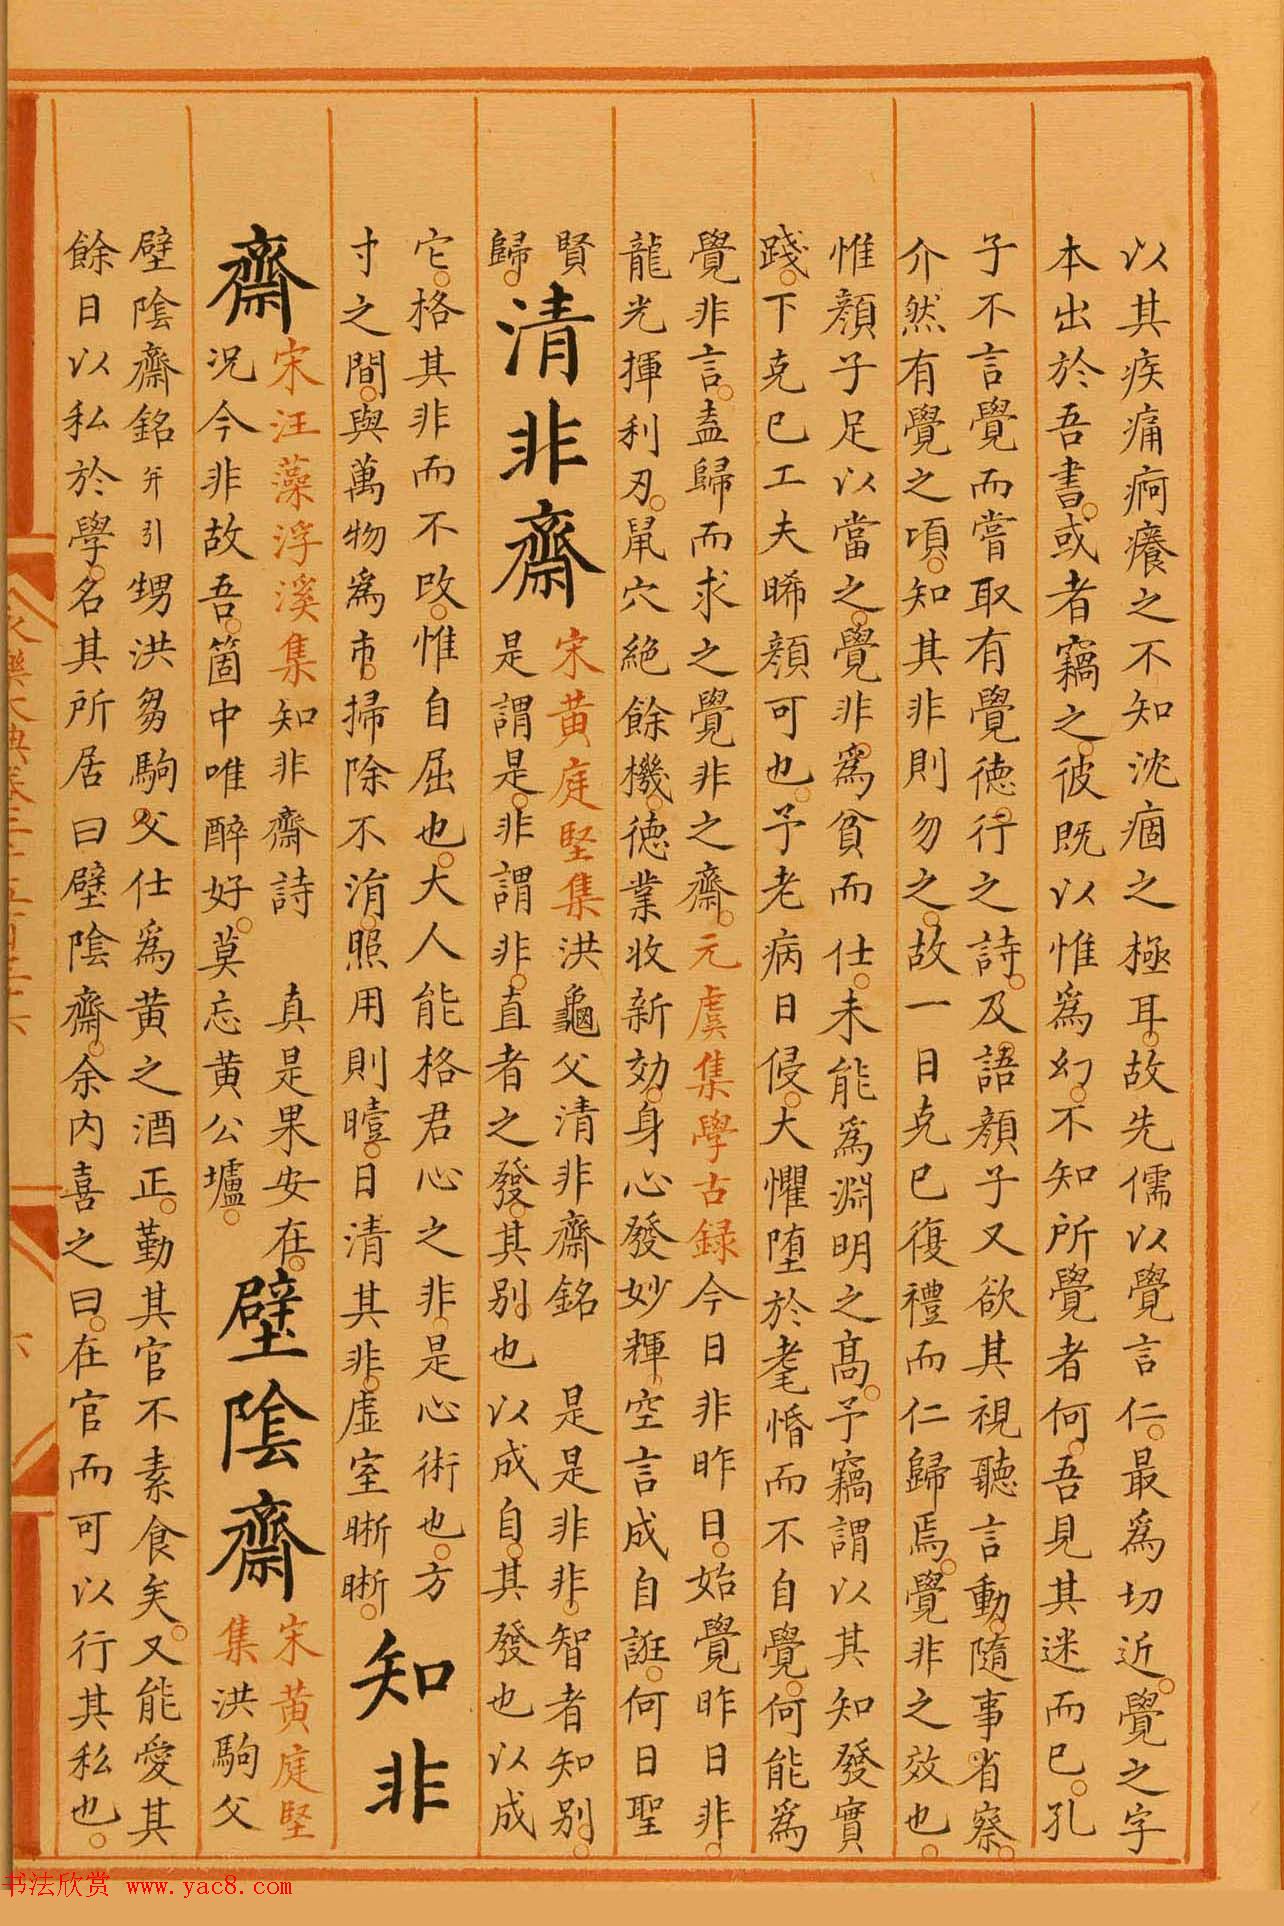 以其疾痛痾癢之不知沈痼之極耳故先儒以覺言仁最爲切近覺之字
本出於吾書或者竊之彼既以惟爲幻不知所覺者何吾見其迷而已孔
子不言覺而嘗取有覺德行之詩及語顏子又欲其視聽言動隨事省察
介然有覺之頃知其非則勿之故一日克已復禮而仁歸焉覺非之效也
惟顏子足以當之覺非爲貧而仕未能爲淵明之高予竊謂以其知發實
踐下克已工夫睎顏可也予老病日侵大懼堕於耄惛而不自覺何能爲
覺非言盍歸而求之覺非之齋元虞集學古録今日非昨日始覺昨日非
龍光揮利刃鼠穴絶餘機德業收新効身心發妙輝空言成自誑何日聖
賢
歸
清非齋
宋黄庭堅集洪龜父清非齋銘 是是非非智者知别
是謂是非謂非直者之發其别也以成自其發也以成
它格其非而不改惟自屈也大人能格君心之非是心術也方
寸之間與萬物爲市掃除不淯照用則曀日清其非虚室晣晣
知非
齋
宋汪藻浮溪集知非齋詩 真是果安在
况今非故吾箇中唯醉好莫忘黄公壚
壁陰齋
宋黄庭堅
集洪駒父
壁陰齋銘并引甥洪芻駒父仕爲黄之酒正勤其官不素食矣又能愛其
餘日以私於學名其所居曰壁陰齋余内喜之曰在官而可以行其私也
六
书法欣赏 www.yac8.com